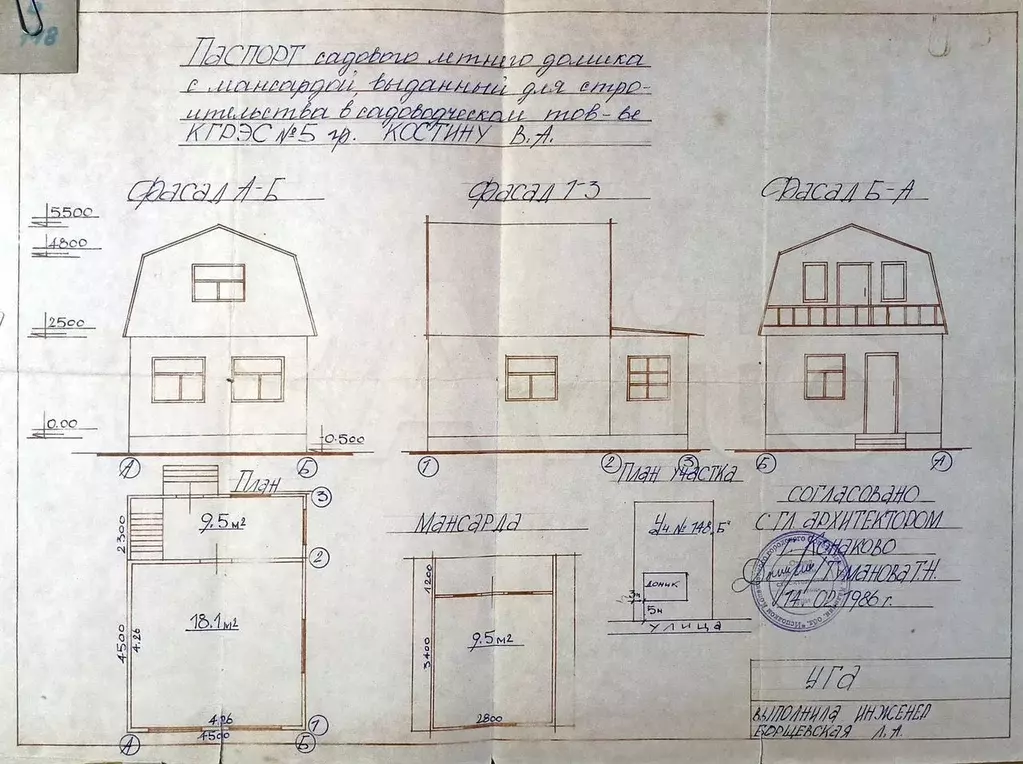 148
Паспорт садового летнего домика
с мансардой, выданный для стро-
ительства в садоводческом тов-ве
КГРЭС №5 гр. Костину В.А.
Фасад А-Б
Фасад 1-3
Фасад Б-А
5500
4800
2500
0.00
-0.500
А
Б
1
2
3
Б
А
План
3
9.5 м2
2300
2
18.1 м2
4500
4.26
4.26
4500
А
Б
1
Мансарда
1200
3400
9.5 м2
2800
План участка
Уч. № 148 „Б"
домик
3м
5м
улица
Согласовано
с гл. архитектором
г. Конаково
Туманова Т.Н.
14. 02. 1986 г.
УГА
Выполнила инженер
Борщевская Л.А.